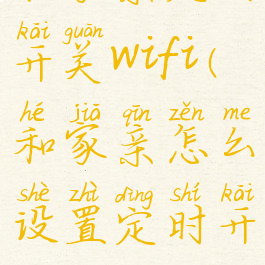 kāi guān
开关wifi(
hé jiā qīn zěn me
和家亲怎么
shè zhì dìng shí kāi
设置定时开